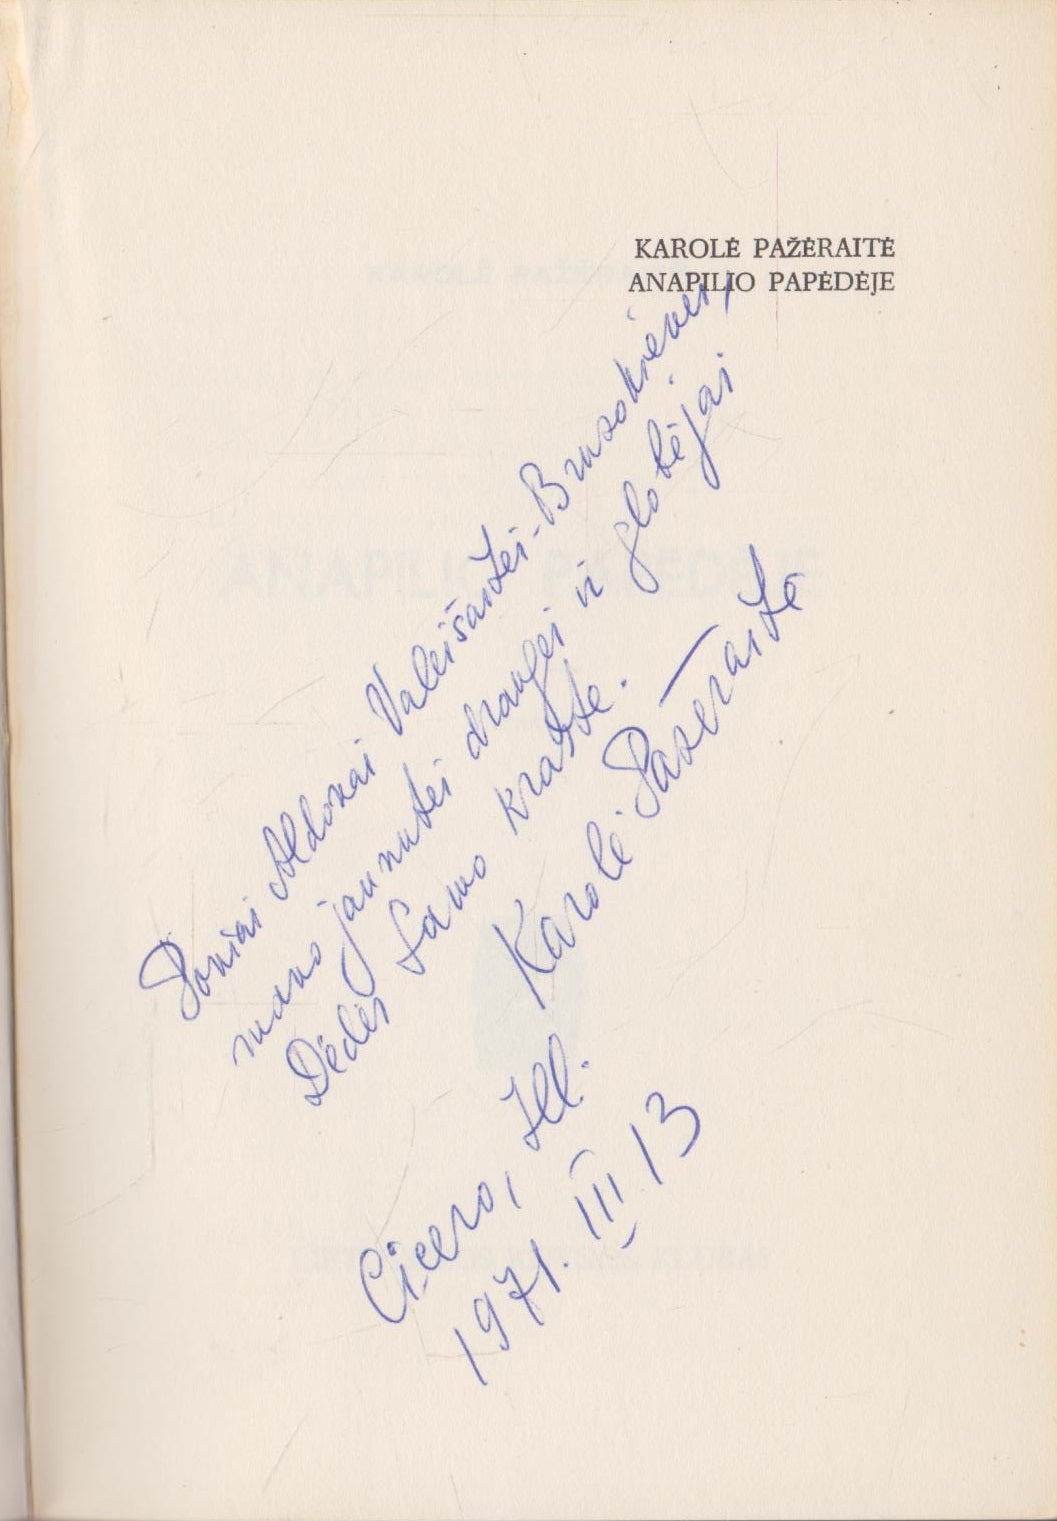 KAROLĖ PAŽĖRAITĖ
ANAPILIO PAPĖDĖJE
Poniai Aldonai Valeišaitei-Brusokienei,
mano jaunutei draugei ir globėjai
Dėdės Samo krašte.
Karolė Pažėraitė
Cicero, Ill.
1971. III 13